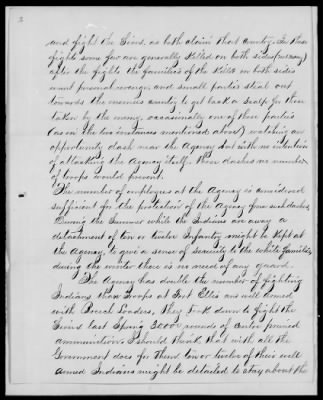 3
and fight the Sioux, as both claim that country. In these
fights some few are generally killed on both sides (
after the fights the families of the killed on both sides
want personal revenge, and small parties steal out
towards the enemies country to get back a scalp for those
taken by the enemy, occasionally one of these parties
(as in the two instances mentioned above) watching an
opportunity dash near the Agency but with no intention
of attacking the Agency itself. These dashes no number
of troops would prevent.
The number of employees at the Agency is considered
sufficient for the protection of the Agency from such dashes,
During the Summer while the Indians are away a
detachment of ten or twelve Infantry might be kept at
the Agency, to give a sense of security to the white families,
during the winter there is no need of any guard.
The Agency has double the number of fighting
Indians than troops at Fort Ellis and well armed
with Breech Loaders, they took down to fight the
Sioux last Spring 30000 rounds of Center primed
ammunition. I should think that with all the
Government does for them ten or twelve of their well
armed Indians might be detailed to stay about the